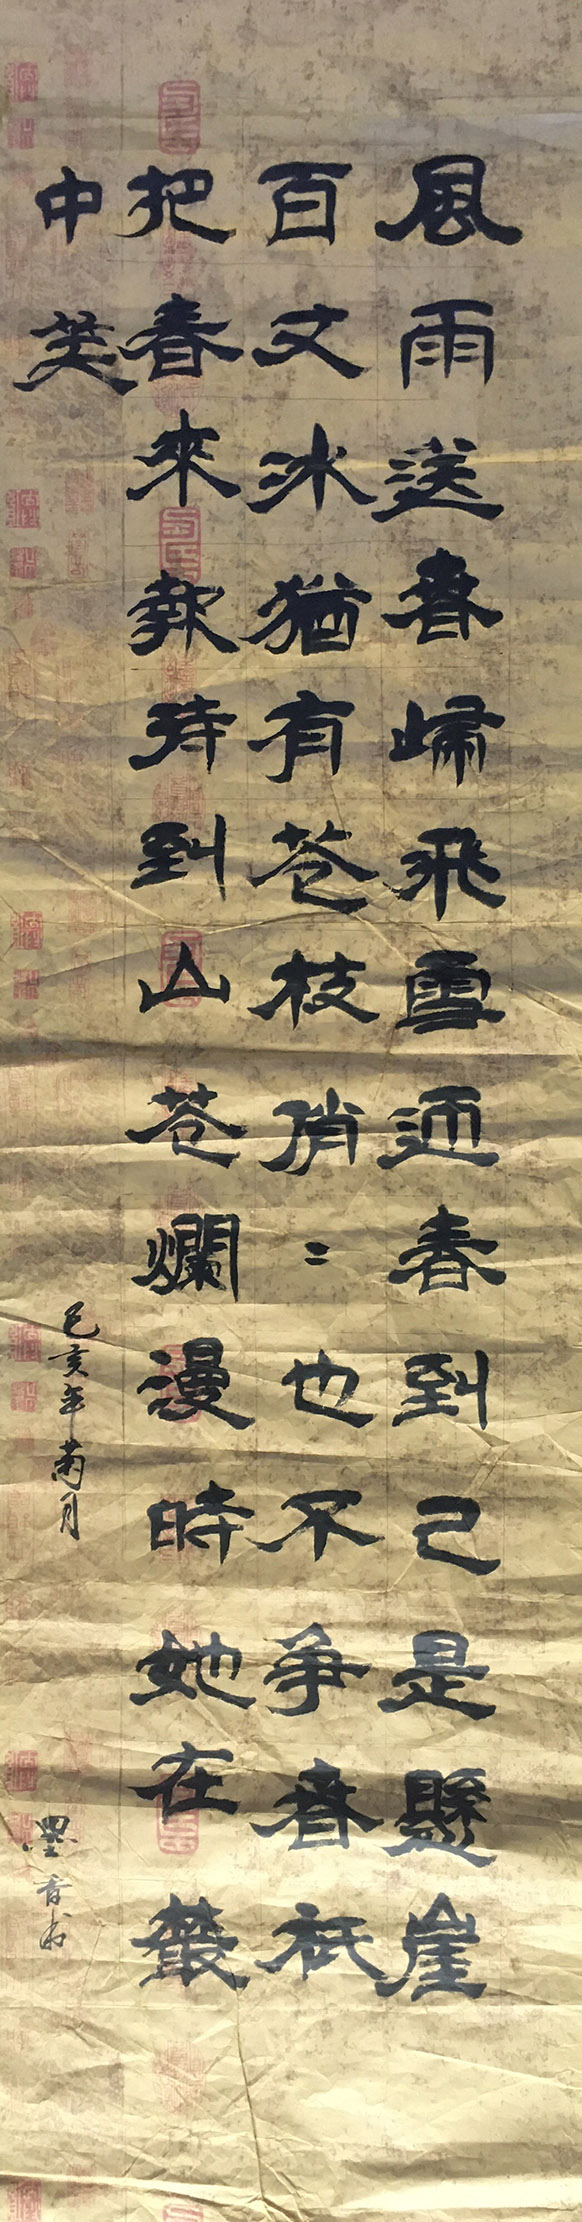 風雨送春歸飛雪迎春到已是懸崖
百丈冰猶有花枝俏〻也不争春衹
把春來報待到山花爛漫時她在叢
中笑
己亥年菊月
墨香书